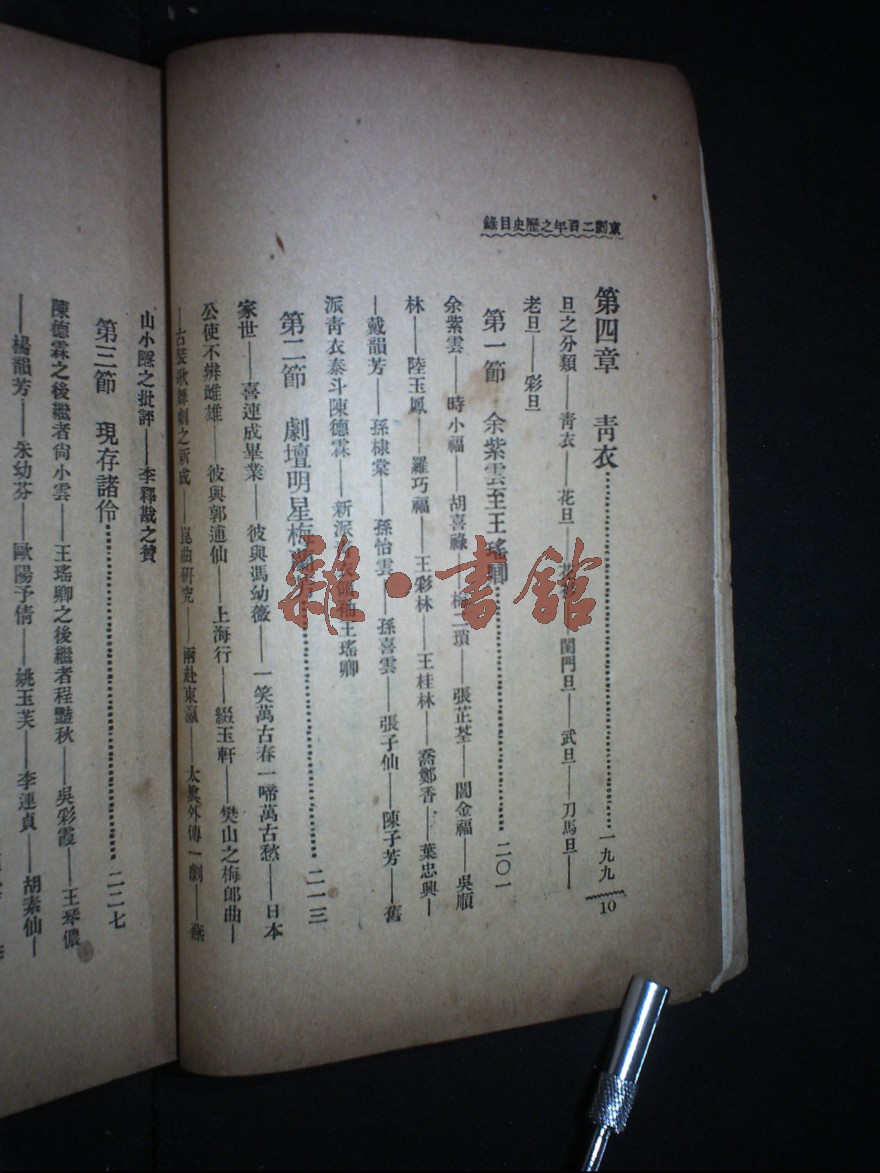 京劇二百年之歷史目錄
第四章 青衣……一九九
旦之分類——青衣——花旦——花衫——閨門旦——武旦——刀馬旦——
老旦——彩旦
第一節 余紫雲至王瑤卿……二〇一
余紫雲——時小福——胡喜祿——梅二瑣——張芷荃——閻金福——吳順
林——陸玉鳳——羅巧福——王彩林——王桂林——喬鄭香——葉忠興—
—戴韻芳——孫棣棠——孫怡雲——孫喜雲——張子仙——陳子芳——舊
派青衣泰斗陳德霖——新派青衣領袖王瑤卿
第二節 劇壇明星梅蘭芳……二一三
家世——喜連成畢業——彼與馮幼薇——一笑萬古春一啼萬古愁——日本
公使不辨雌雄——彼與郭逋仙——上海行——綴玉軒——樊山之梅郎曲—
—古裝歌舞劇之新成——崑曲研究——兩赴東瀛——太眞外傳一劇——
山小隱之批評——李釋戡之贊
第三節 現存諸伶……二二七
陳德霖之後繼者尙小雲——王瑤卿之後繼者程豔秋——吳彩霞——王琴儂
——楊韻芳——朱幼芬——歐陽予倩——姚玉芙——李連貞——胡素仙—
10
雜·書館